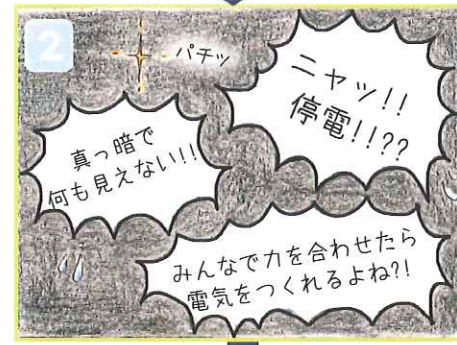 2
パチッ
ニャッ!!
停電!!??
真っ暗で
何も見えない!!
みんなで力を合わせたら
電気をつくれるよね?!